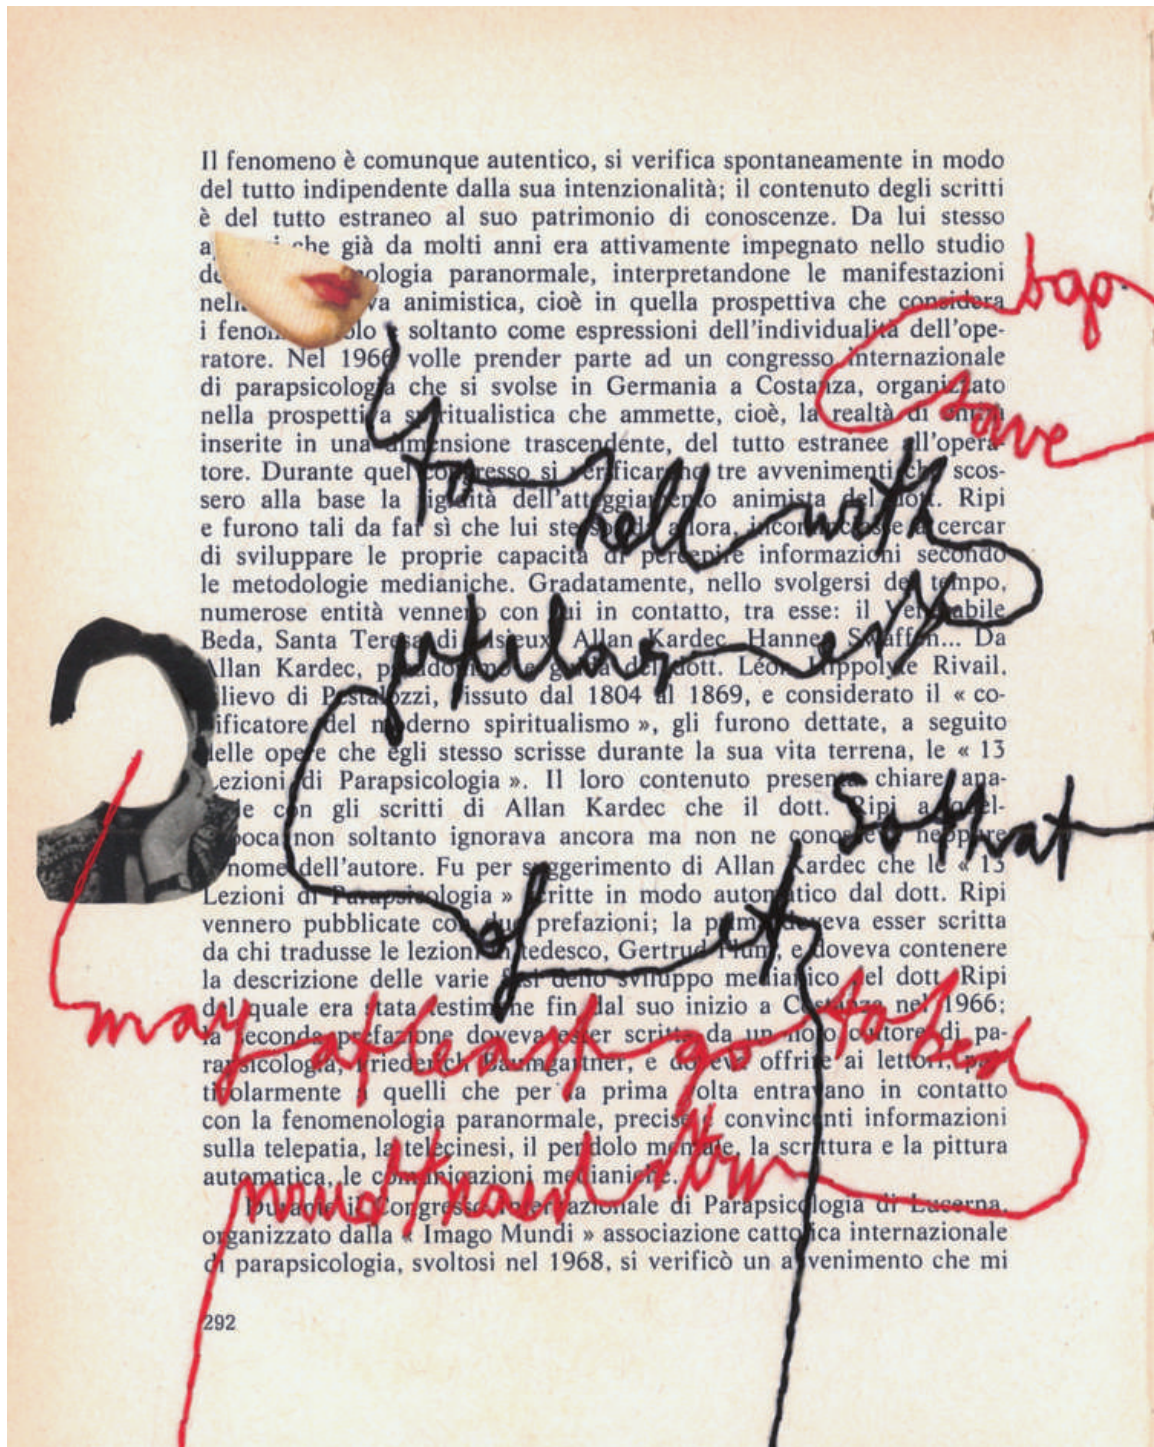 Il fenomeno è comunque autentico, si verifica spontaneamente in modo
del tutto indipendente dalla sua intenzionalità; il contenuto degli scritti
è del tutto estraneo al suo patrimonio di conoscenze. Da lui stesso
che già da molti anni era attivamente impegnato nello studio
paranormale, interpretandone le manifestazioni
animistica, cioè in quella prospettiva che considera
i soltanto come espressioni dell'individualità dell'ope-
ratore. Nel 1966 volle prender parte ad un congresso internazionale
di parapsicologia che si svolse in Germania a Costanza, organizzato
nella prospettiva spiritualistica che ammette, cioè, la realtà di entità
save
inserite in una dimensione trascendente, del tutto estranee all'opera-
tore. Durante quel congresso si verificarono tre avvenimenti che scos-
to hell with
sero alla base la rigidità dell'atteggiamento animista del dott. Ripi
e furono tali da far sì che lui stesso, da allora, incominciasse a cercar
di sviluppare le proprie capacità di percepire informazioni secondo
le metodologie medianiche. Gradatamente, nello svolgersi del tempo,
numerose entità vennero con lui in contatto, tra esse: il Venerabile
Beda, Santa Teresa di Lisieux, Allan Kardec, Hannen Swaffen... Da
Allan Kardec, pseudonimo e guida del dott. Léon Hippolyte Rivail,
allievo di Pestalozzi, vissuto dal 1804 al 1869, e considerato il « co-
dificatore del moderno spiritualismo », gli furono dettate, a seguito
delle opere che egli stesso scrisse durante la sua vita terrena, le « 13
Lezioni di Parapsicologia ». Il loro contenuto presenta chiare ana-
con gli scritti di Allan Kardec che il dott. Ripi a quel-
so that
non soltanto ignorava ancora ma non ne conosceva neppure
nome dell'autore. Fu per suggerimento di Allan Kardec che le « 13
Lezioni di Parapsicologia » scritte in modo automatico dal dott. Ripi
vennero pubblicate con due prefazioni; la prima doveva esser scritta
of
da chi tradusse le lezioni in tedesco, Gertrud e doveva contenere
la descrizione delle varie fasi dello sviluppo medianico del dott. Ripi
del quale era stata testimone fin dal suo inizio a Costanza nel 1966;
may at least go to bed
la seconda prefazione doveva esser scritta da un noto cultore di pa-
rapsicologia, Friederich Baumgartner, e doveva offrire ai lettori, par-
ticolarmente a quelli che per la prima volta entravano in contatto
con la fenomenologia paranormale, precise e convincenti informazioni
sulla telepatia, la telecinesi, il pendolo mentale, la scrittura e la pittura
automatica, le comunicazioni medianiche.
Durante il Congresso Internazionale di Parapsicologia di Lucerna,
organizzato dalla « Imago Mundi » associazione cattolica internazionale
di parapsicologia, svoltosi nel 1968, si verificò un avvenimento che mi
292